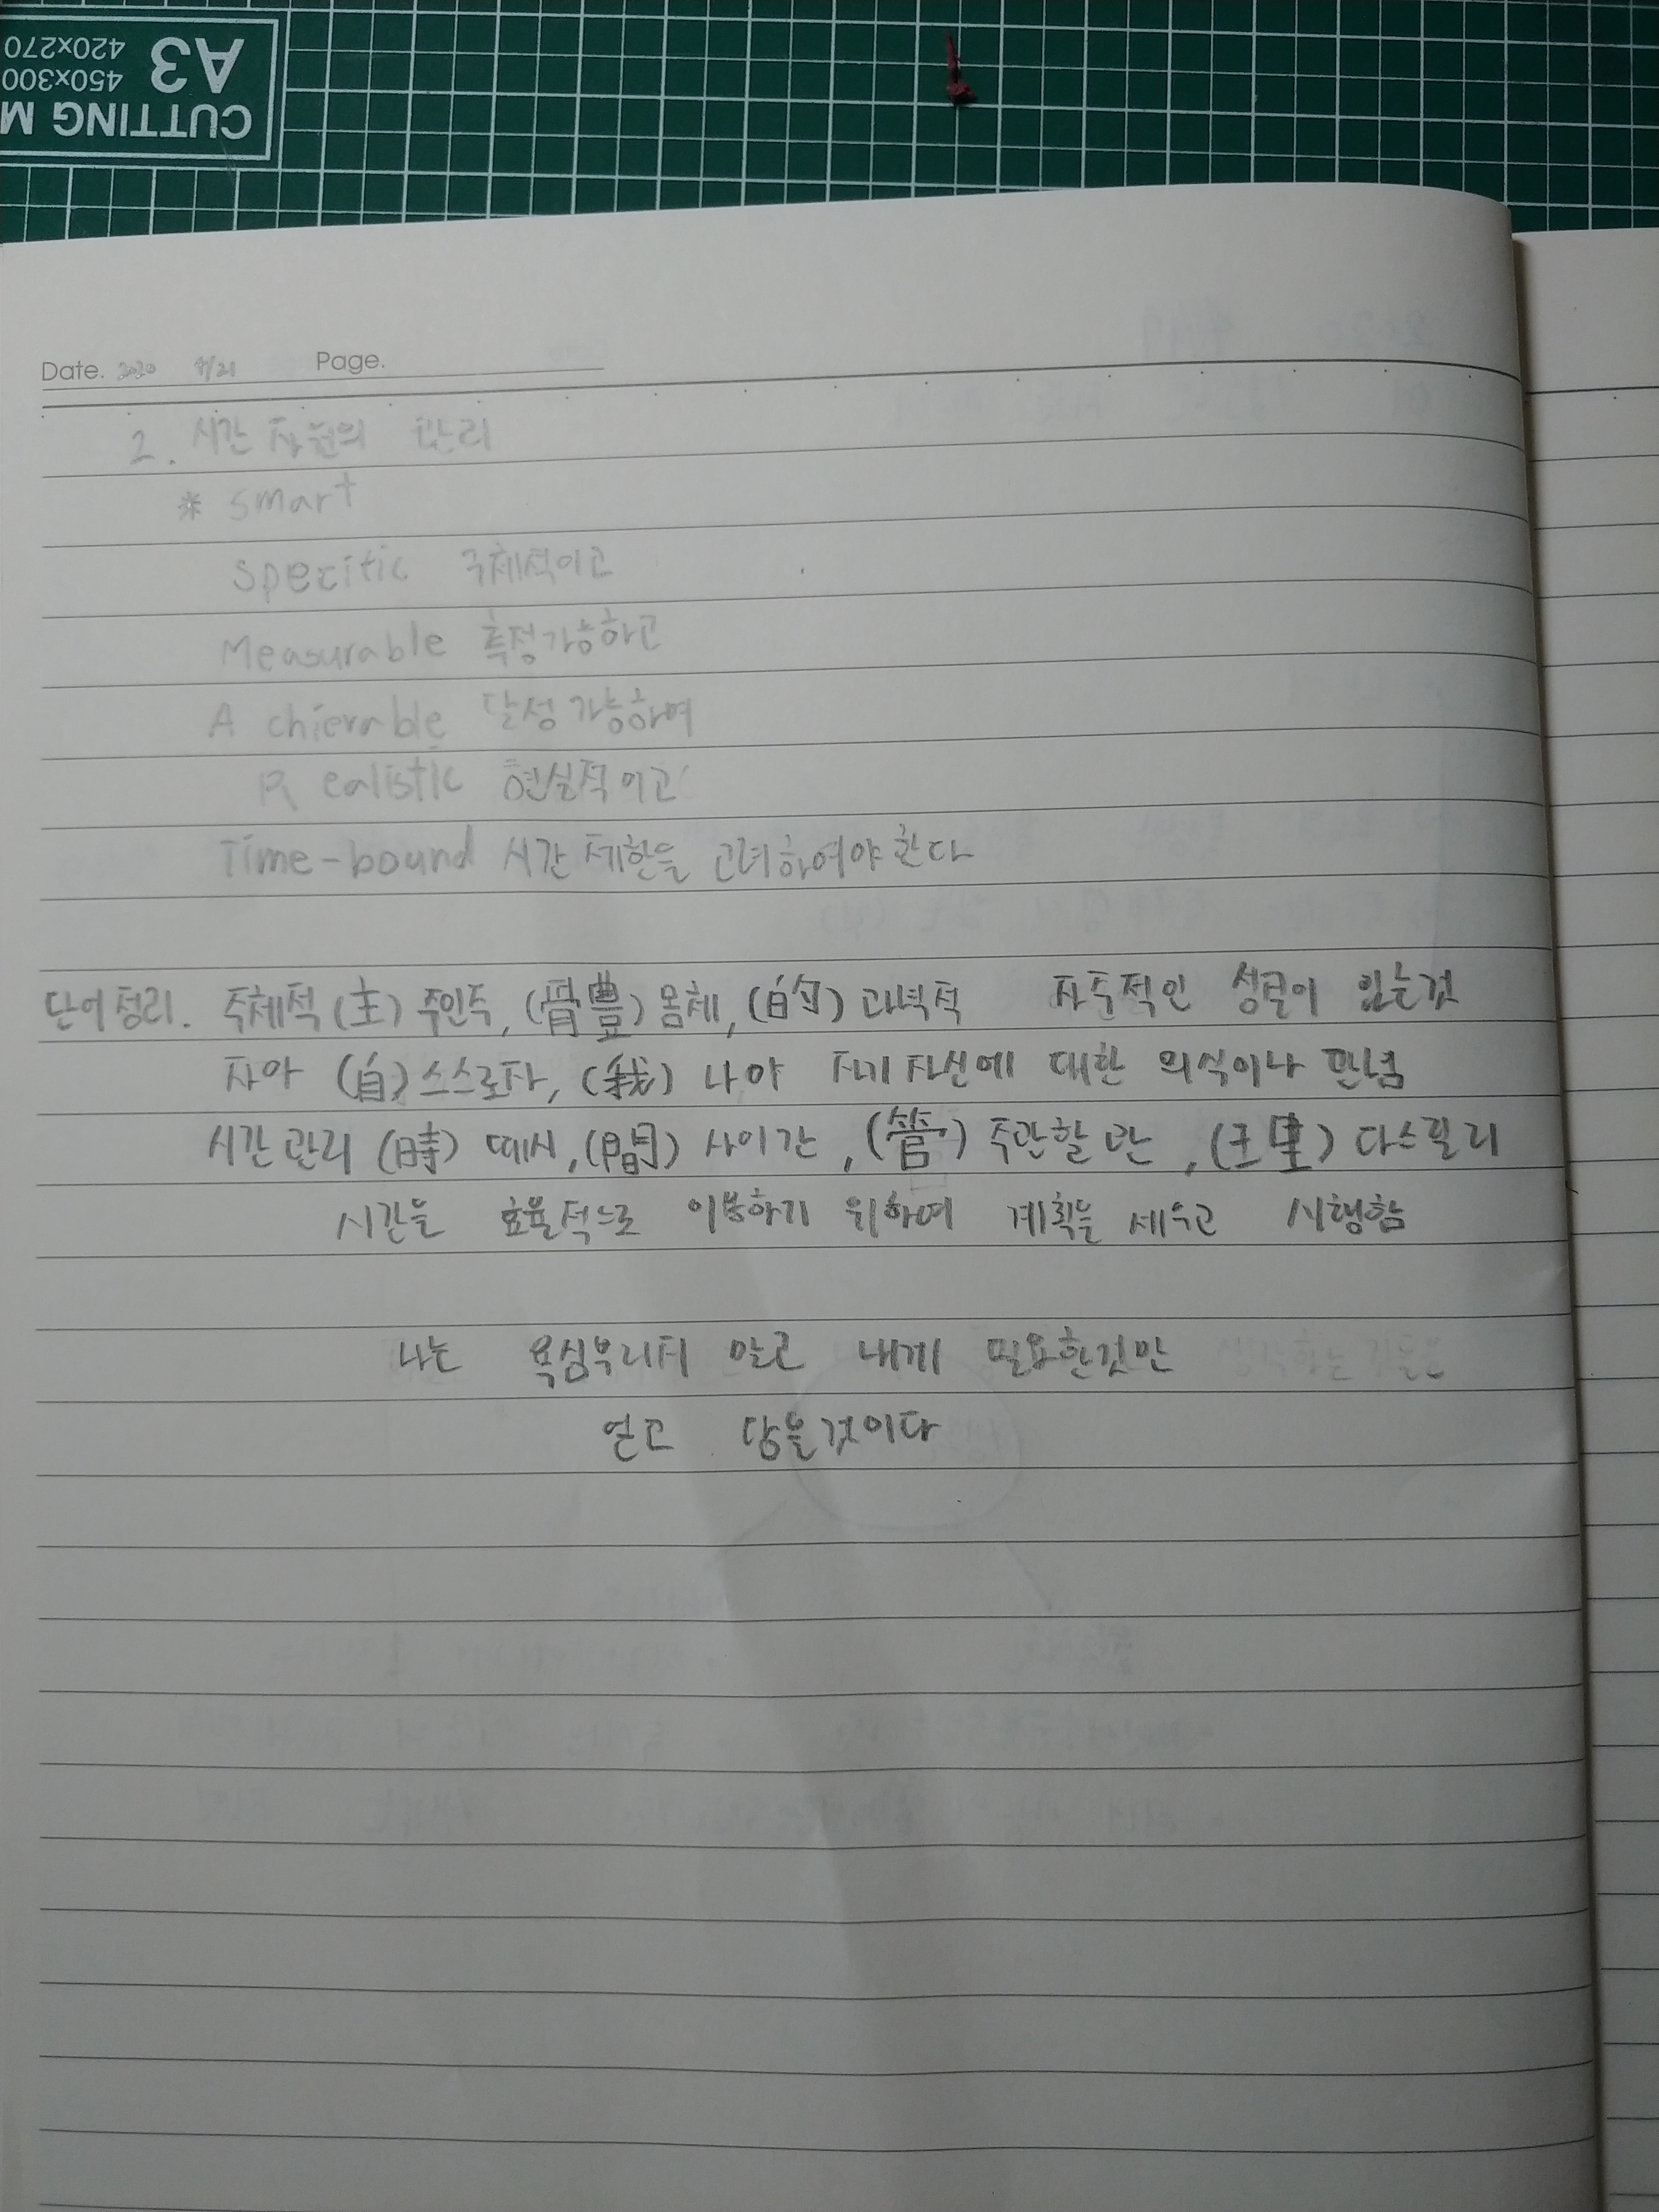 CUTTING M
A3
450x300
420x270
Date. 2020 4/21 Page.
2. 시간 자원의 관리
* smart
Specitic 구체적이고
Measurable 측정가능하고
A chierable 달성가능하며
R ealistic 현실적이고
Time-bound 시간제한을 고려하여야 한다
단어정리. 주체적 (主) 주인주, (體) 몸체, (的) 과녁적 자주적인 성질이 있는것
자아 (自) 스스로자, (我) 나아 자기자신에 대한 의식이나 관념
시간관리 (時) 때시, (間) 사이간, (管) 주관할관, (理) 다스릴리
시간을 효율적으로 이용하기 위하여 계획을 세우고 시행함
나는 욕심부리지 않고 내게 필요한것만
얻고 담을것이다